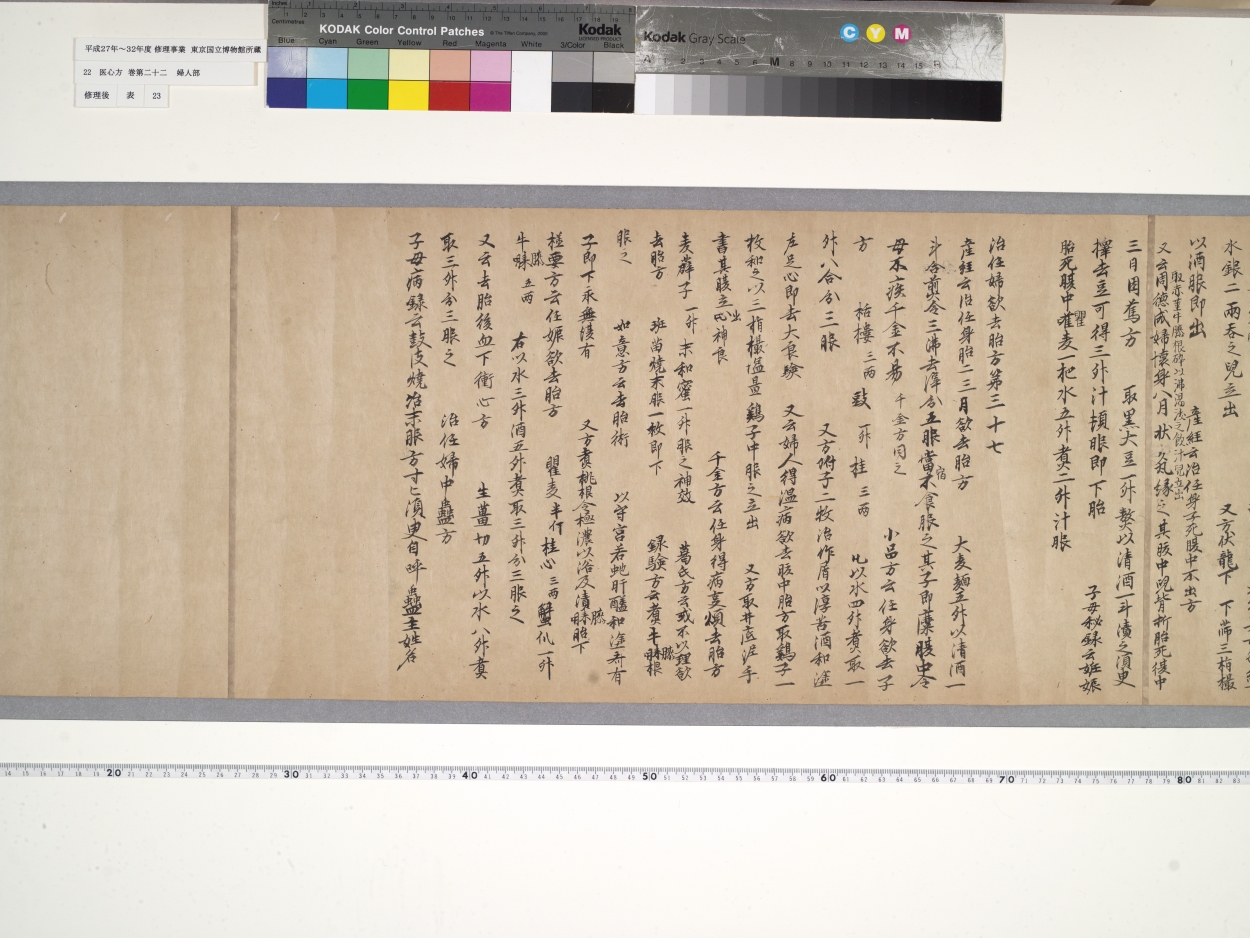 平成27年〜32年度 修理事業 東京国立博物館所蔵
22 医心方 巻第二十二 婦人部
修理後 表 23
Inches
Centimetres
KODAK Color Control Patches
Kodak
Blue Cyan Green Yellow Red Magenta White 3/Color Black
Kodak Gray Scale
C Y M
A 1 2 3 4 5 6 M 8 9 10 11 12 13 14 15 B
水銀二兩吞之兒立出 又方伏龍下 下篩三指撮
以酒服即出 産経云治任身子死腹中不出方
三日困篤方 取黒大豆一升熬以清酒一斗漬之須臾
擇去豆可得三升汁頓服即下胎 子母秘録云妊娠
胎死腹中瞿麦一把水五升煮二升汁服
治任婦欲去胎方第三十七
産経云治任身胎二三月欲去胎方 大麦麺五升以清酒一
斗合煎令三沸去滓分五服當宿不食服之其子即糜腹中令
母不疾千金不易 千金方同之 小品方云任身欲去子
方 栝樓三兩 豉一升 桂三兩 凡以水四升煮取一
升八合分三服 又方附子二枚治作屑以淳苦酒和塗
左足心即去大良験 又云婦人得温病欲去腹中胎方取鷄子一
枚和之以三指撮塩置鷄子中服之立出 又方取井底泥手
書其腹立出神良 千金方云任身得病事煩去胎方
麦蘖子一升末和蜜一升服之神效 葛氏方云或不以理欲
去胎方 班苗燒末服一枚即下 録験方云煮牛膝根
服之 如意方云去胎術 以守宮若虵肝醯和塗齊有
子即下永無復有 又方煮桃根令極濃以浴及漬膝胎下
極要方云任娠欲去胎方 瞿麦半斤 桂心三兩 蟹爪一升
牛膝五兩 右以水三升酒五升煮取三升分三服之
又云去胎後血下衝心方 生薑切五升以水八升煮
取三升分三服之 治任婦中蠱方
子母病録云鼓皮燒治末服方寸匕須臾自呼蠱主姓名
14 15 16 17 18 19 20 21 22 23 24 25 26 27 28 29 30 31 32 33 34 35 36 37 38 39 40 41 42 43 44 45 46 47 48 49 50 51 52 53 54 55 56 57 58 59 60 61 62 63 64 65 66 67 68 69 70 71 72 73 74 75 76 77 78 79 80 81 82 83